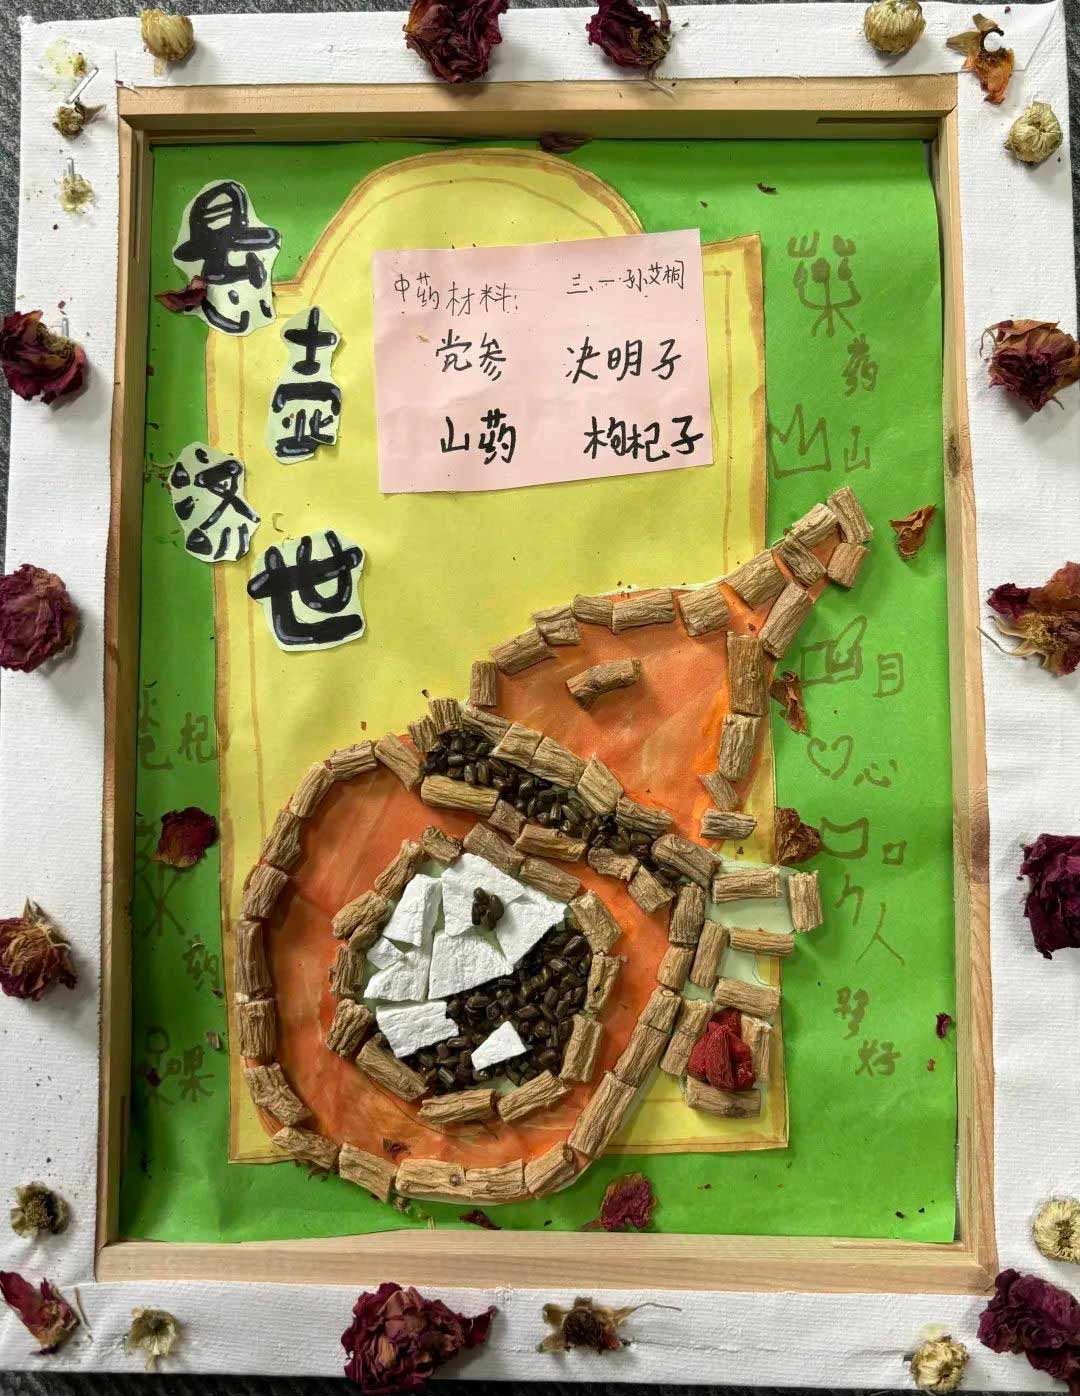 悬
壶
济
世
中药材料: 三、一 孙艾桐
党参 决明子
山药 枸杞子
药
山
目
心
口
人
好
杞
药
果